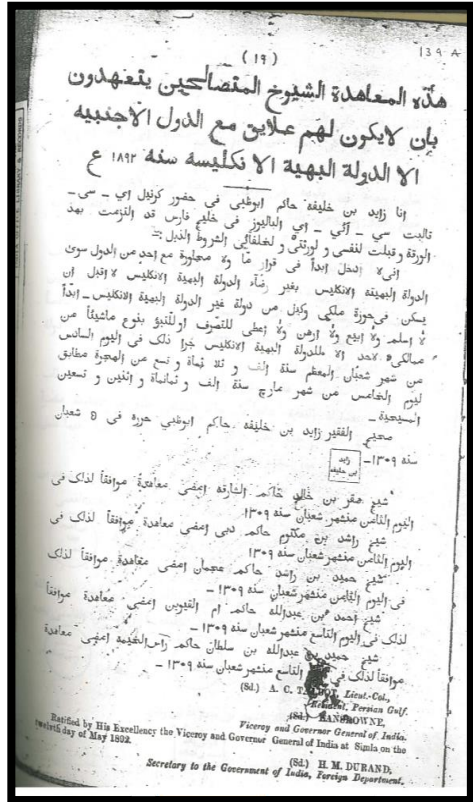 139 A
(١٩)
هذه المعاهدة الشيوخ المتصالحين يتعهدون
بان لايكون لهم علايق مع الدول الاجنبيه
الا الدولة البهية الانكليسه سنه ١٨٩٢ ع
انا زايد بن خليفه حاكم ابوظبي فى حضور كرنيل اي - سى -
تالبت سي - آئي - اي الباليوز فى خليج فارس قد التزمت بهذ
الورقة وقبلت لنفسى و لورثتى و لخلفائى الشروط الذيل :-
انى لا ادخل ابداً فى قرار مّا ولا مخابرة مع احد من الدول سوى
الدولة البهيته الانكليس بغير رضاء الدولة البهية الانكليس لا اقبل ان
يسكن فى حوزة ملكي وكيل من دولة غير الدولة البهية الانكليس - ابداً
لا اسلم ولا ابيع ولا ارهن ولا اعطى للتصرف او بنوع ماشيئاً من
ممالكى لاحد الا للدولة البهية الانكليس جرا ذلك فى اليوم السادس
من شهر شعبان المعظم سنة الف و ثلا ثماة و تسع من الهجرة مطابق
ليوم الخامس من شهر مارچ سنة الف و ثمانماة و اثنين و تسعين
المسيحية -
صحيح الفقير زايد بن خليفه حاكم ابوظبي حرره فى ٥ شعبان
سنه ١٣٠٩ -
زايد
بن خليفه
شيخ صقر بن خالد حاكم الشارقه امضى معاهدة موافقاً لذلك فى
اليوم الثامن منشهر شعبان سنه ١٣٠٩
شيخ راشد بن مكتوم حاكم دبى امضى معاهدة موافقاً لذلك فى
اليوم الثامن منشهر شعبان سنه ١٣٠٩
شيخ حميد بن راشد حاكم عجمان امضى معاهدة موافقاً لذلك
فى اليوم الثامن منشهر شعبان سنه ١٣٠٩ -
شيخ احمد بن عبدالله حاكم ام القيوين امضى معاهدة موافقاً
لذلك فى اليوم التاسع منشهر شعبان سنه ١٣٠٩ -
شيخ حميد بن عبدالله بن سلطان حاكم راس الخيمه امضى معاهدة
موافقاً لذلك فى التاسع منشهر شعبان سنه ١٣٠٩ -
(Sd.) A. C. TALBOT, Lieut.-Col.,
Resident, Persian Gulf.
(Sd.) LANSDOWNE,
Viceroy and Governor General of India.
Ratified by His Excellency the Viceroy and Governor General of India at Simla on the
twelfth day of May 1892.
(Sd.) H. M. DURAND,
Secretary to the Government of India, Foreign Department.